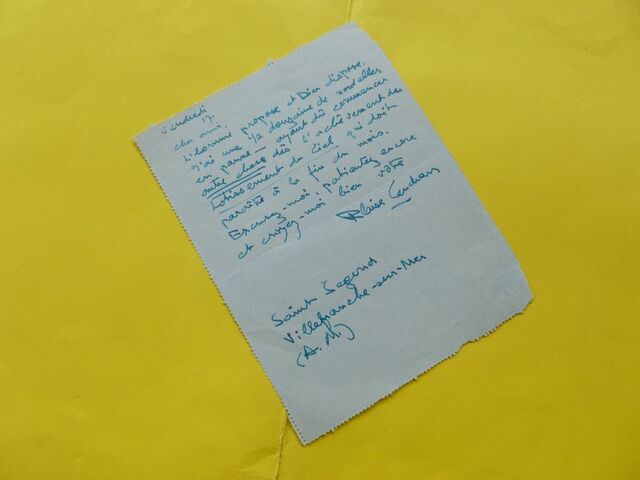 Vendredi
17
cher ami,
L'homme propose et Dieu dispose.
J'ai une 1/2 douzaine de nouvelles
en panne — ayant dû commencer
autre chose dès l'achèvement du
Lotissement du Ciel qui doit
paraître à la fin du mois.
Excusez-moi, patientez encore
et croyez-moi bien vôtre
Blaise Cendrars
Saint Segond
Villefranche-sur-Mer
(A. M.)